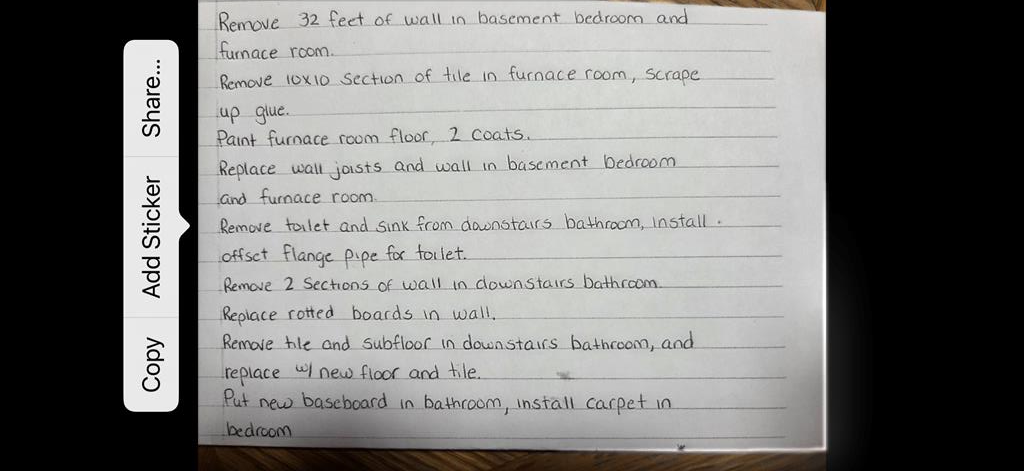 Remove 32 feet of wall in basement bedroom and
furnace room.
Remove 10x10 section of tile in furnace room, scrape
up glue.
Paint furnace room floor, 2 coats.
Replace wall joists and wall in basement bedroom
and furnace room.
Remove toilet and sink from downstairs bathroom, install
offset flange pipe for toilet.
Remove 2 sections of wall in downstairs bathroom.
Replace rotted boards in wall.
Remove tile and subfloor in downstairs bathroom, and
replace w/ new floor and tile.
Put new baseboard in bathroom, install carpet in
bedroom
Copy
Add Sticker
Share...